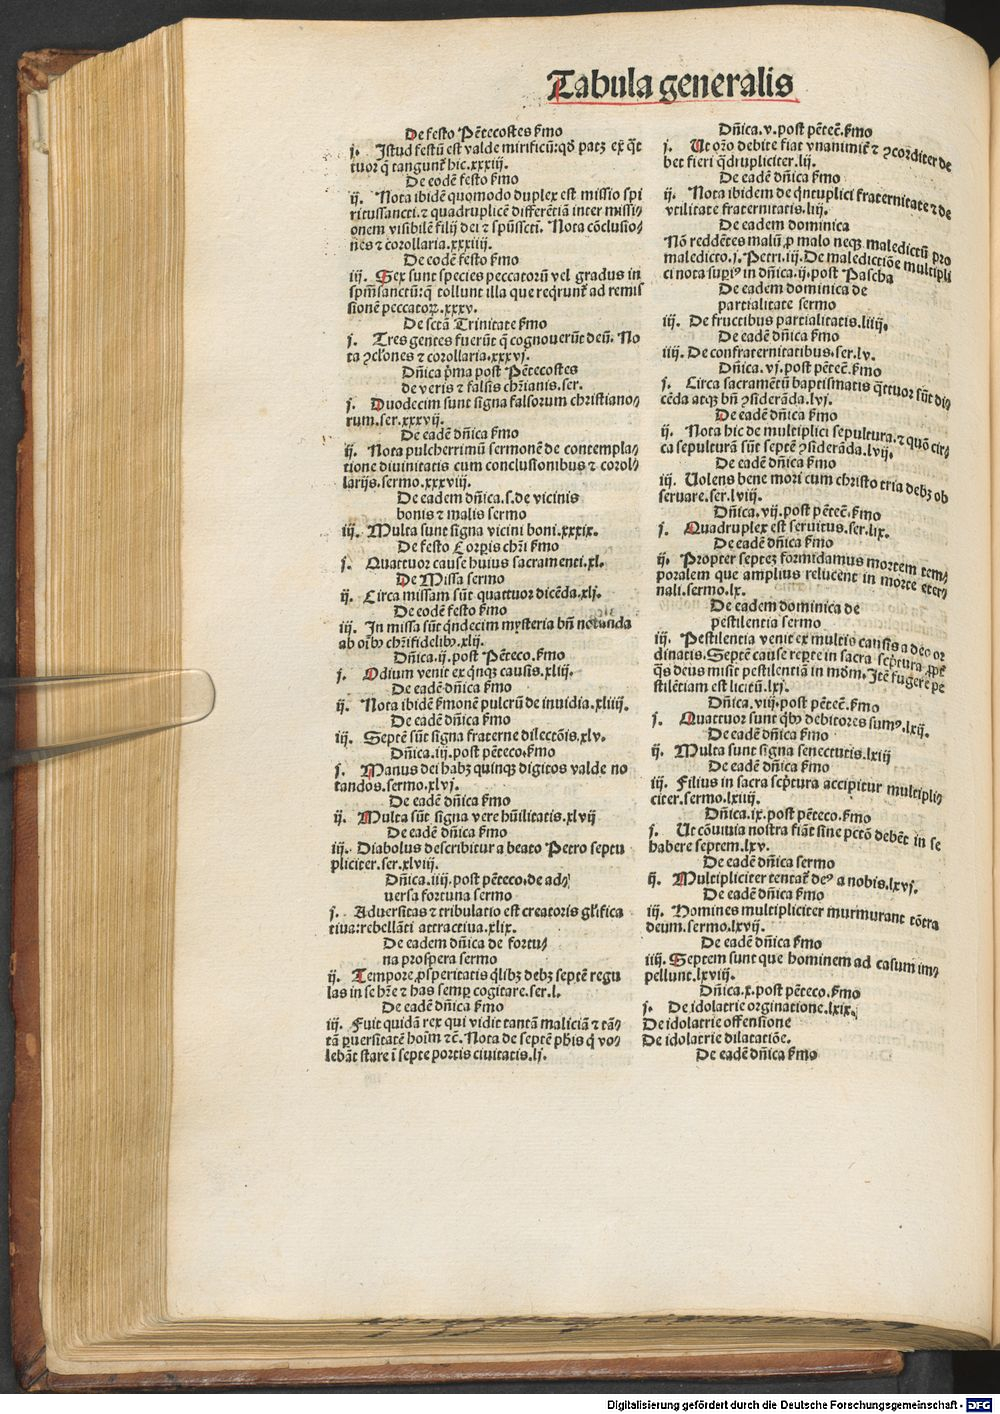 Tabula generalis
De festo Pẽtecostes ẜmo
j. Istud festũ est valde mirificũ: qđ patꝫ ex̃ q̃t
tuor q̃ tangunt̃ hic. xxxiij.
De eodẽ festo ẜmo
ij. Nota ibidẽ quomodo duplex est missio spi
ritussancti. ⁊ quadruplicẽ differẽtiã inter missi⸗
onem visibilẽ filij dei ⁊ spũssctĩ. Nota cõclusio⸗
nẽs ⁊ corollaria. xxxiiij.
De eodẽ festo ẜmo
iij. Sex sunt species peccatorũ vel gradus in
spm̃sanctũ: q̃ tollunt illa que reqrunt̃ ad remis
sionẽ peccatoꝝ. xxxv.
De sctã Trinitate ẜmo
j. Tres gentes fuerũt q̃ cognouerũt deũ. No
ta ꝯcl'ones ⁊ corollaria. xxxvj.
Dñica p̃ma post Pẽtecostes
de veris ⁊ falsis chr̃ianis. ser.
j. Duodecim sunt signa falsorum christiano⸗
rum. ser. xxxvij.
De eadẽ dñica ẜmo
ij. Nota pulcherrimũ sermonẽ de contempla⸗
tione diuinitatis cum conclusionibus ⁊ corol⸗
larijs. sermo. xxxviij.
De eadem dñica. s. de vicinis
bonis ⁊ malis sermo
iij. Multa sunt signa vicini boni. xxxix.
De festo Corꝑis chr̃i ẜmo
j. Quattuor cause huius sacramenti. xl.
De Missa sermo
ij. Circa missam sũt quattuor dicẽda. xlj.
De eodẽ festo ẜmo
iij. In missa sũt qndecim mysteria bñ notanda
ab oĩbꝰ chr̃ifidelibꝰ. xlij.
Dñica. ij. post Pẽteco. ẜmo
j. Odium venit ex q̃nqꝫ causis. xliij.
De eadẽ dñica ẜmo
ij. Nota ibidẽ ẜmonẽ pulcrũ de inuidia. xliiij.
De eadẽ dñica ẜmo
iij. Septẽ sũt signa fraterne dilectõis. xlv.
Dñica. iij. post pẽteco. ẜmo
j. Manus dei habꝫ quinqꝫ digitos valde no
tandos. sermo. xlvj.
De eadẽ dñica ẜmo
ij. Multa sũt signa vere hũilitatis. xlvij
De eadẽ dñica ẜmo
iij. Diabolus describitur a beato Petro septu
pliciter. ser. xlviij.
Dñica. iiij. post pẽteco. de ad⸗
uersa fortuna sermo
j. Aduersitas ⁊ tribulatio est creatoris gl'ifica
tiua: rebellãti attractiua. xlix.
De eadem dñica de fortu⸗
na prospera sermo
ij. Tempore ꝓsperitatis qlibꝫ debꝫ septẽ regu
las in se hr̃e ⁊ has semꝑ cogitare. ser. l.
De eadẽ dñica ẜmo
iij. Fuit quidã rex qui vidit tantã maliciã ⁊ tã⸗
tã ꝑuersitatẽ hoĩm ⁊c̃. Nota de septẽ pħis q̃ vo⸗
lebãt stare ĩ septe portis ciuitatis. lj.
Dñica. v. post pẽtec̃. ẜmo
j. Ut or̃o debite fiat vnanimit̃ ⁊ ꝯcorditer de
bet fieri q̃drupliciter. lij.
De eadẽ dñica ẜmo
ij. Nota ibidem de q̃ntuplici fraternitate ⁊ de
vtilitate fraternitatis. liij.
De eadem dominica
Nõ reddẽtes malũ ꝓ malo neqꝫ maledictũ pro
maledicto. j. Petri. iij. De maledictiõe multipli
ci nota supiꝰ in dñica. ij. post Pascha
De eadem dominica de
partialitate sermo
iij. De fructibus partialitatis. liiij.
De eadẽ dñica ẜmo
iiij. De confraternitatibus. ser. lv.
Dñica. vj. post pẽtec̃. ẜmo
j. Circa sacramẽtũ baptismatis q̃ttuor sũt di⸗
cẽda atqꝫ bñ ꝯsiderãda. lvj.
De eadẽ dñica ẜmo
ij. Nota hic de multiplici sepultura. ⁊ quõ cir⸗
ca sepulturã sũt septẽ ꝯsiderãda. lvij.
De eadẽ dñica ẜmo
iij. Uolens bene mori cum christo tria debꝫ ob
seruare. ser. lviij.
Dñica. vij. post pẽtec̃. ẜmo
j. Quadruplex est seruitus. ser. lix.
De eadẽ dñica ẜmo
ij. Propter septeꝫ formidamus mortem tem⸗
poralem que amplius relucent in morte eter⸗
nali. sermo. lx.
De eadem dominica de
pestilentia sermo
iij. Pestilentia venit ex multis causis a deo or
dinatis. Septẽ cause reꝑte in sacra scp̃tura ꝓpt̃
q̃s deus misit̃ pestilentiã in mõm. Itẽ fugere pe
stilẽtiam est licitũ. lxj.
Dñica. viij. post pẽtec̃. ẜmo
j. Quattuor sunt qbꝰ debitores sumꝰ. lxij.
De eadẽ dñica ẜmo
ij. Multa sunt signa senectutis. lxiij
De eadẽ dñica ẜmo
iij. Filius in sacra scp̃tura accipitur multipli⸗
citer. sermo. lxiiij.
Dñica. ix. post pẽteco. ẜmo
j. Ut cõuiuia nostra fiãt sine pctõ debẽt in se
habere septem. lxv.
De eadẽ dñica sermo
ij. Multipliciter tentat̃ deꝰ a nobis. lxvj.
De eadẽ dñica ẜmo
iij. Homines multipliciter murmurant cõtra
deum. sermo. lxvij.
De eadẽ dñica ẜmo
iiij. Septem sunt que hominem ad casum im⸗
pellunt. lxviij.
Dñica. x. post pẽteco. ẜmo
j. De idolatrie orginatione. lxix.
De idolatrie offensione
De idolatrie dilatatiõe.
De eadẽ dñica ẜmo
Digitalisierung gefördert durch die Deutsche Forschungsgemeinschaft - DFG